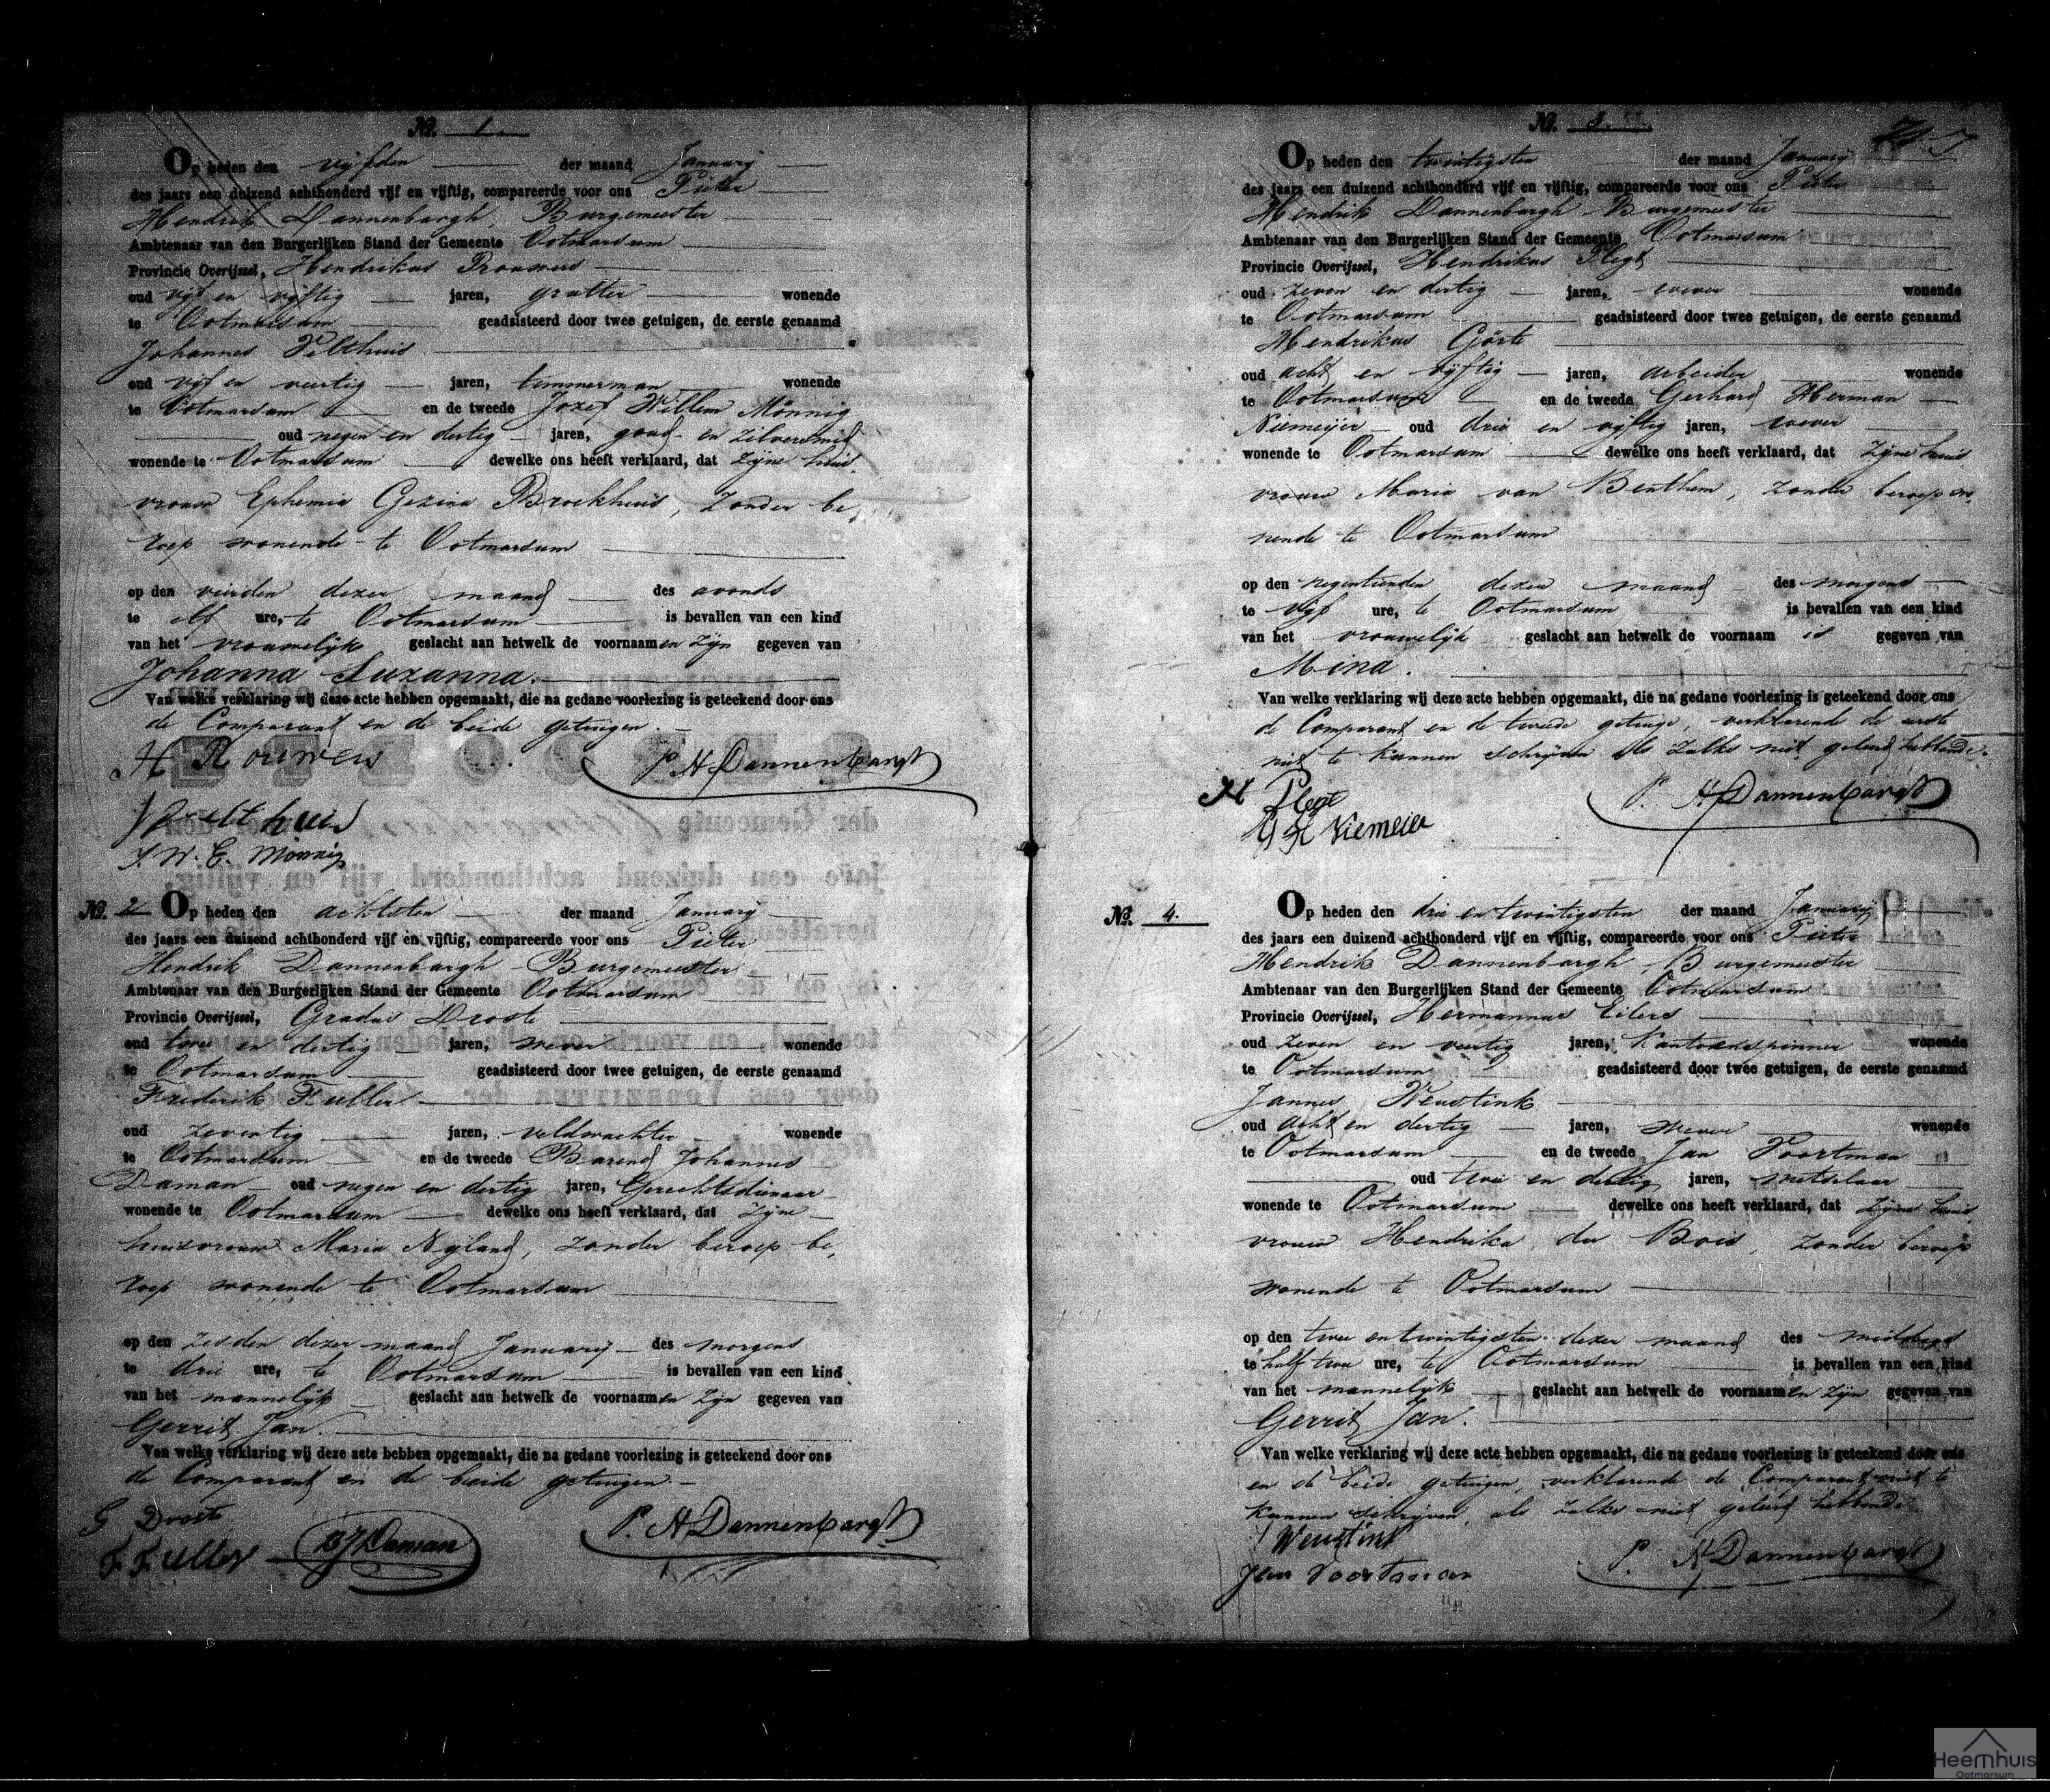 No. 1.
Op heden den vijfden der maand January
des jaars een duizend achthonderd vijf en vijftig, compareerde voor ons Pieter
Hendrik Dannenbargh, Burgemeester
Ambtenaar van den Burgerlijken Stand der Gemeente Ootmarsum
Provincie Overijssel, Hendrikus
oud vijf en vijftig jaren, wonende
te Ootmarsum geadsisteerd door twee getuigen, de eerste genaamd
Johannes Velthuis
oud vijf en veertig jaren, timmerman wonende
te Ootmarsum en de tweede Jozef Willem Mönnig
oud negen en dertig jaren, goud- en zilversmid
wonende te Ootmarsum dewelke ons heeft verklaard, dat zijne huis-
vrouw Ephemia Gezina Broekhuis, zonder be-
roep wonende te Ootmarsum
op den vierden dezer maand des avonds
te elf ure, te Ootmarsum is bevallen van een kind
van het vrouwelijk geslacht aan hetwelk de voornaamen zijn gegeven van
Johanna Suzanna.
Van welke verklaring wij deze acte hebben opgemaakt, die na gedane voorlezing is geteekend door ons
de Comparant en de beide getuigen.
H Rouwers P H Dannenbargh
J Velthuis
J. W. C. Mönnig
No. 2 Op heden den achtsten der maand January
des jaars een duizend achthonderd vijf en vijftig, compareerde voor ons Pieter
Hendrik Dannenbargh Burgemeester
Ambtenaar van den Burgerlijken Stand der Gemeente Ootmarsum
Provincie Overijssel, Gradus Droste
oud twee en dertig jaren, wever wonende
te Ootmarsum geadsisteerd door twee getuigen, de eerste genaamd
Frederik Fuller
oud zeventig jaren, veldwachter wonende
te Ootmarsum en de tweede Barend Johannes
Daman oud negen en dertig jaren, Gerechtsdienaar
wonende te Ootmarsum dewelke ons heeft verklaard, dat zijne
huisvrouw Maria Nijland, zonder beroep be-
roep wonende te Ootmarsum
op den zesden dezer maand January des morgens
te drie ure, te Ootmarsum is bevallen van een kind
van het mannelijk geslacht aan hetwelk de voornaamen zijn gegeven van
Gerrit Jan.
Van welke verklaring wij deze acte hebben opgemaakt, die na gedane voorlezing is geteekend door ons
de Comparant en de beide getuigen.
G Droste
F Fuller BJDaman P. H Dannenbargh
No. 3.
Op heden den twintigsten der maand January
des jaars een duizend achthonderd vijf en vijftig, compareerde voor ons Pieter
Hendrik Dannenbargh Burgemeester
Ambtenaar van den Burgerlijken Stand der Gemeente Ootmarsum
Provincie Overijssel, Hendrikus Plegt
oud zeven en dertig jaren, wever wonende
te Ootmarsum geadsisteerd door twee getuigen, de eerste genaamd
Hendrikus Görte
oud acht en vijftig jaren, arbeider wonende
te Ootmarsum en de tweede Gerhard Herman
Niemeijer oud drie en vijftig jaren, wever
wonende te Ootmarsum dewelke ons heeft verklaard, dat zijne huis
vrouw Maria van Benthem, zonder beroep wo-
nende te Ootmarsum
op den negentienden dezer maand des morgens
te vijf ure, te Ootmarsum is bevallen van een kind
van het vrouwelijk geslacht aan hetwelk de voornaam is gegeven van
Mina.
Van welke verklaring wij deze acte hebben opgemaakt, die na gedane voorlezing is geteekend door ons
de Comparant en de tweede getuige, verklarende de eerste
niet te kunnen schrijven als zulks niet geleerd hebbende.
H Plegt P. H Dannenbargh
G H Niemeier
No. 4. Op heden den drie en twintigsten der maand January
des jaars een duizend achthonderd vijf en vijftig, compareerde voor ons Pieter
Hendrik Dannenbargh, Burgemeester
Ambtenaar van den Burgerlijken Stand der Gemeente Ootmarsum
Provincie Overijssel, Hermannus Eilers
oud zeven en veertig jaren, wonende
te Ootmarsum geadsisteerd door twee getuigen, de eerste genaamd
Jannes Weustink
oud acht en dertig jaren, wever wonende
te Ootmarsum en de tweede Jan Voortman
oud twee en dertig jaren, metselaar
wonende te Ootmarsum dewelke ons heeft verklaard, dat zijne huis-
vrouw Hendrika du Bois, zonder beroep
wonende te Ootmarsum
op den twee en twintigsten dezer maand des middags
te half twee ure, te Ootmarsum is bevallen van een kind
van het mannelijk geslacht aan hetwelk de voornaamen zijn gegeven van
Gerrit Jan.
Van welke verklaring wij deze acte hebben opgemaakt, die na gedane voorlezing is geteekend door ons
en de beide getuigen, verklarende de Comparant niet te
kunnen schrijven, als zulks niet geleerd hebbende.
J Weustink P. H Dannenbargh
Jan Voortman
Heemhuis
Ootmarsum